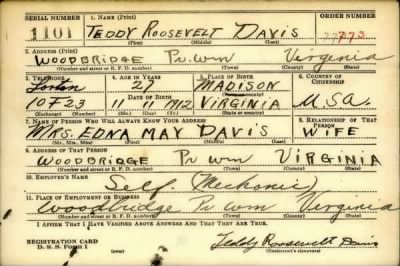 SERIAL NUMBER 1. NAME (Print) ORDER NUMBER
1101 TEDDY ROOSEVELT DAVIS
(First) (Middle) (Last)
2. ADDRESS (Print)
WOODBRIDGE Pr. Wm Virginia
(Number and street or R. F. D. number) (Town) (County) (State)
3. TELEPHONE 4. AGE IN YEARS 5. PLACE OF BIRTH 6. COUNTRY OF CITIZENSHIP
Lorton 27 MADISON
DATE OF BIRTH
10F23 11 11 1912 VIRGINIA U.S.A.
(Exchange) (Number) (Mo.) (Day) (Yr.) (State or country)
7. NAME OF PERSON WHO WILL ALWAYS KNOW YOUR ADDRESS 8. RELATIONSHIP OF THAT PERSON
MRS. EDNA MAY DAVIS WIFE
(Mr., Mrs., Miss) (First) (Middle) (Last)
9. ADDRESS OF THAT PERSON
WOODBRIDGE Pr Wm VIRGINIA
(Number and street or R. F. D. number) (Town) (County) (State)
10. EMPLOYER'S NAME
Self. (Mechanic)
11. PLACE OF EMPLOYMENT OR BUSINESS
Woodbridge Pr Wm Virginia
(Number and street or R. F. D. number) (Town) (County) (State)
I AFFIRM THAT I HAVE VERIFIED ABOVE ANSWERS AND THAT THEY ARE TRUE.
REGISTRATION CARD
D. S. S. Form 1 Teddy Roosevelt Davis
(Registrant's signature)